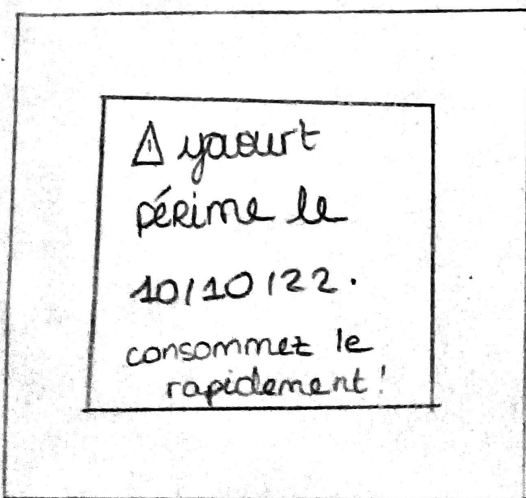 ⚠ yaourt
périme le
10/10/22.
consommez le
rapidement!